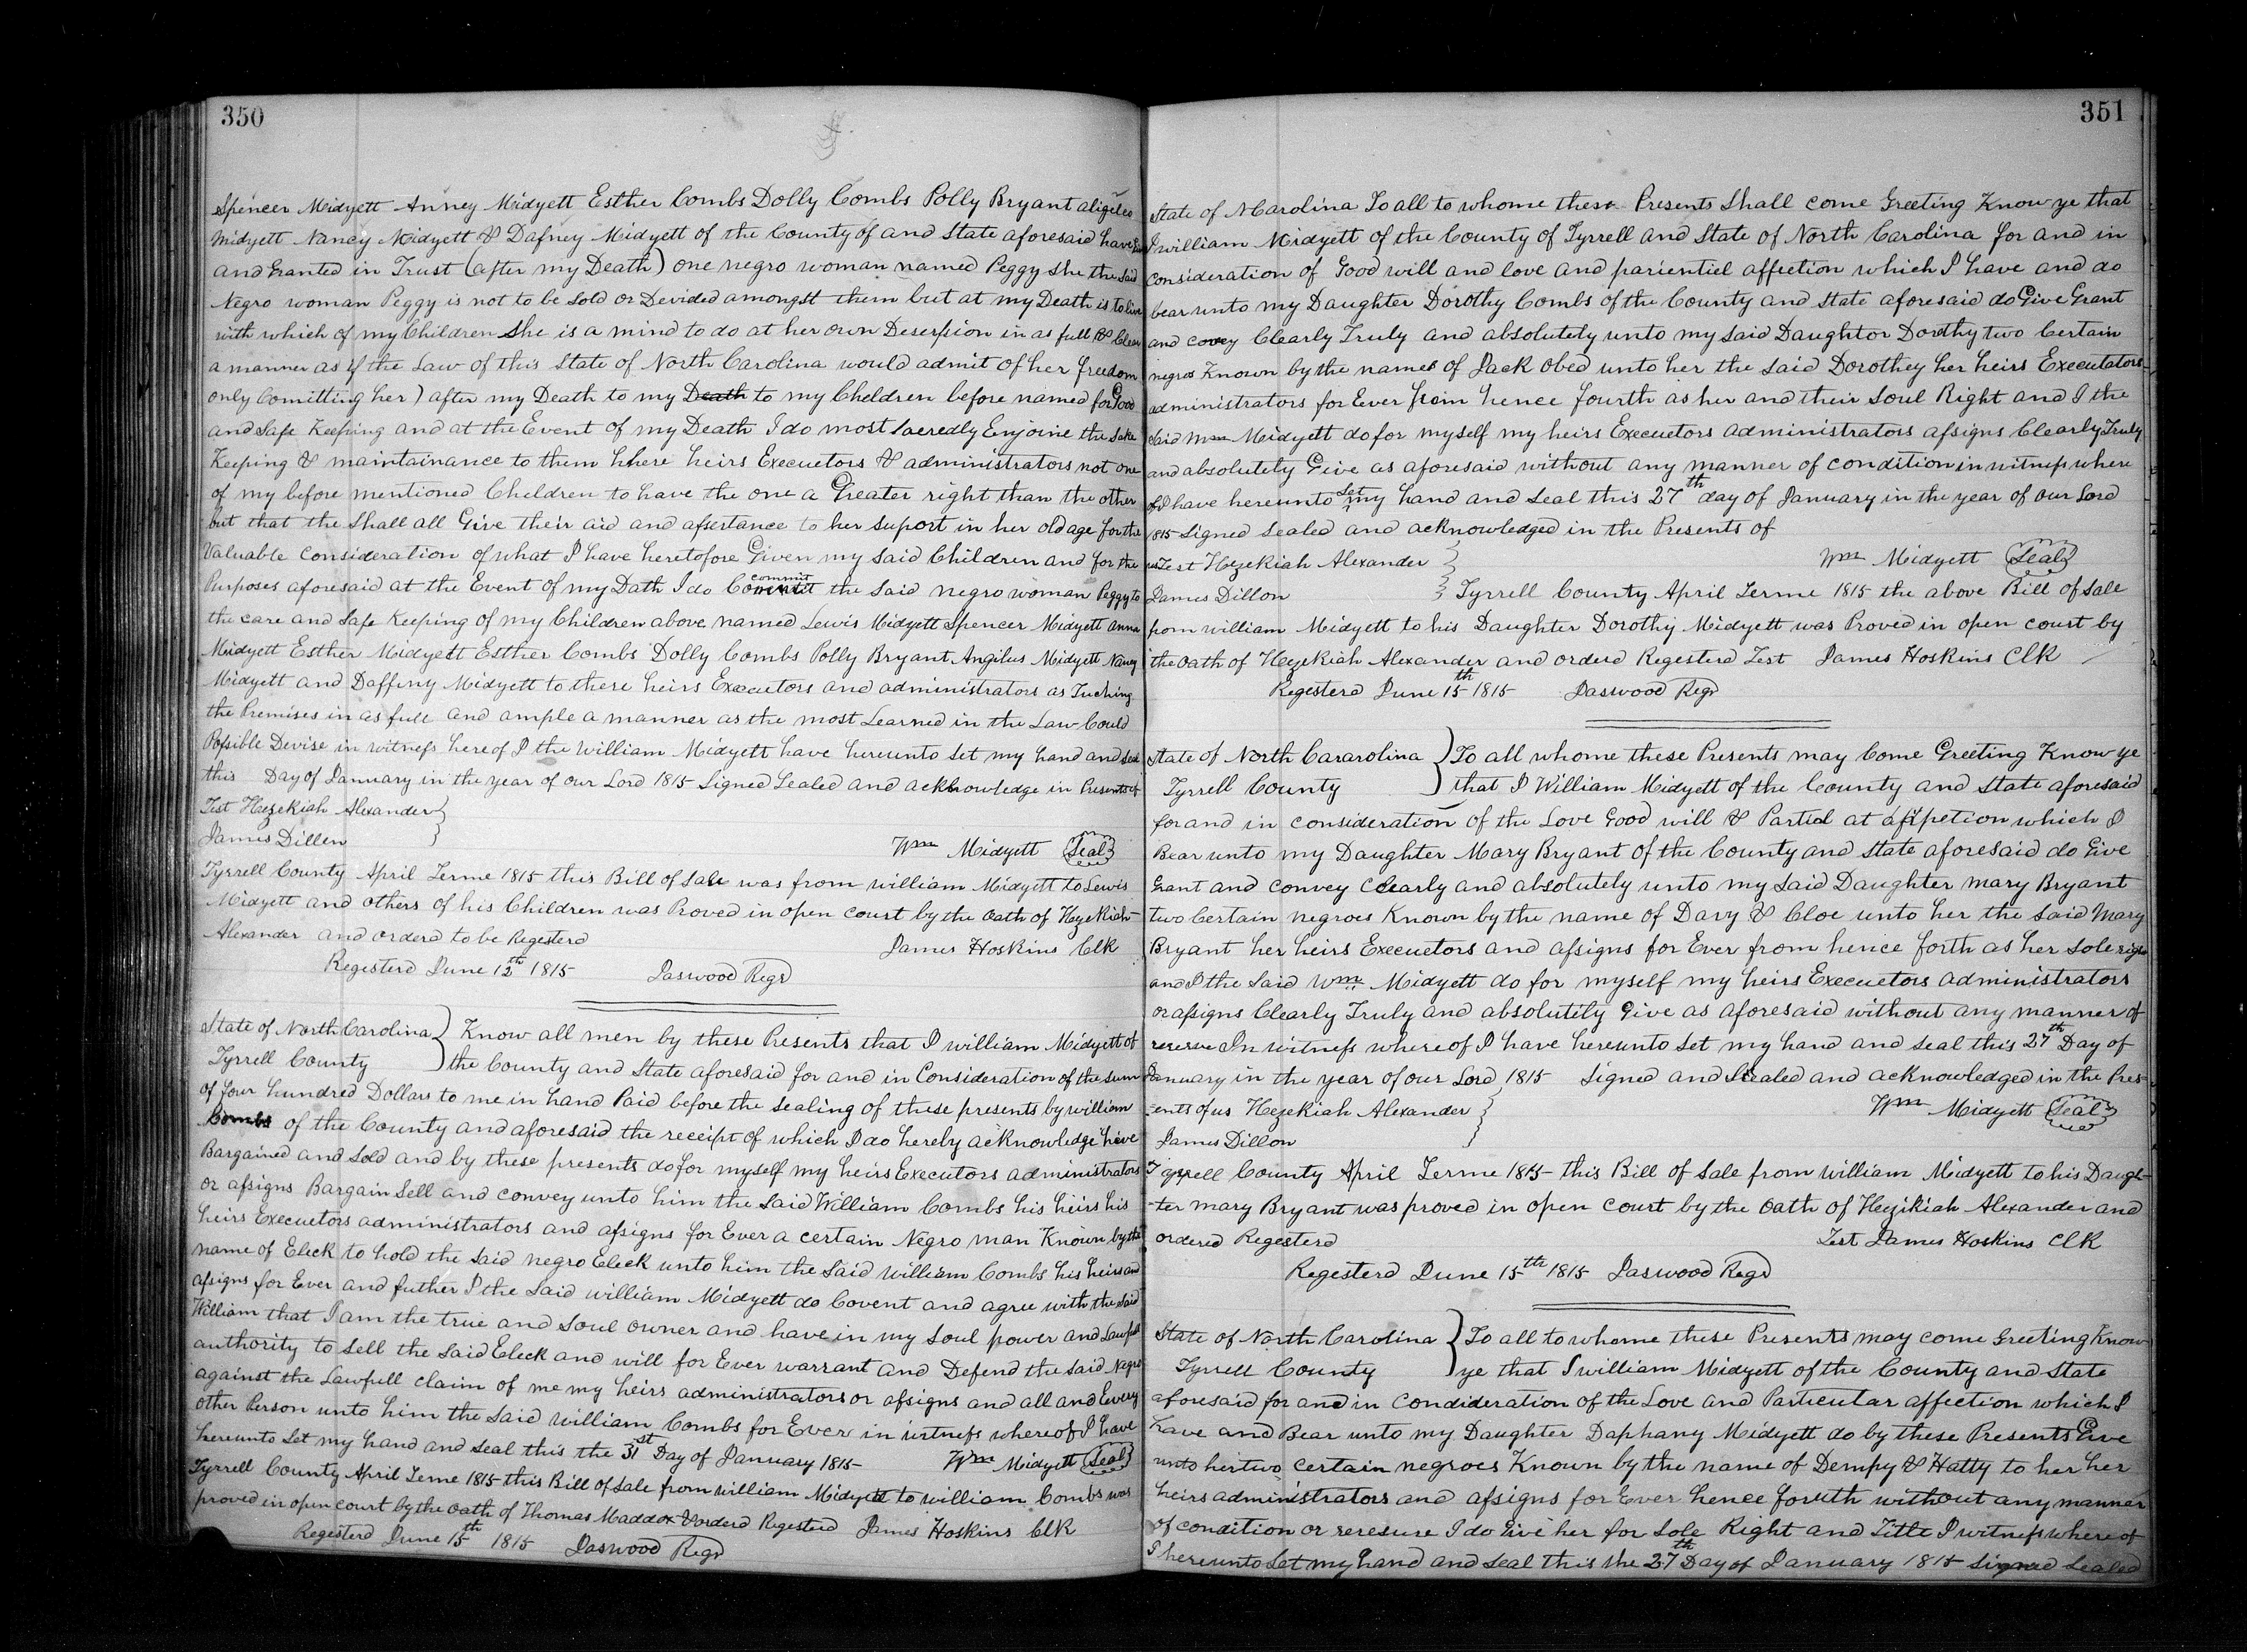 350
Spencer Midyett Anney Midyett Esther Combs Dolly Combs Polly Bryant aligiles
Midyett Nancy Midyett & Dafney Midyett of the County of and State aforesaid have
and Granted in Trust (after my Death) one negro woman named Peggy She the said
Negro woman Peggy is not to be Sold or Devided amongst them but at my Death is to live
with which of my Children She is a mind to do at her own Desersion in as full & Clear
a manner as if the Law of this State of North Carolina would admit of her freedom
only Comitting her) after my Death to my Death to my Cheldren before named for Good
and Safe Keeping and at the Event of my Death I do most Sacredly Enjoine the Safe
Keeping & maintainance to them there heirs Execuetors & administrators not one
of my before mentioned Children to have the one a Greater right than the other
but that the Shall all Give their aid and assertance to her Suport in her old age for the
Valuable Consideration of what I have heretofore Given my Said Children and for the
Purposes aforesaid at the Event of my Dath I do commit the Said negro woman Peggy to
the care and Safe Keeping of my Children above named Lewis Midyett Spencer Midyett anna
Midyett Esther Midyett Esther Combs Dolly Combs Polly Bryant Angilus Midyett Nancy
Midyett and Daffiny Midyett to there heirs Execuetors and administrators as Tuching
the Premises in as full and ample a manner as the most Learned in the Law Could
Possible Devise in witness hereof I the William Midyett have hereunto Set my hand and Seal
this Day of January in the year of our Lord 1815 Signed Sealed and acknowledge in Presents of
Test Hezekiah Alexander
James Dillen
Wm Midyett Seal
Tyrrell County April Terme 1815 this Bill of Sale was from william Midyett to Lewis
Midyett and others of his Children was Proved in open court by the oath of Hezekiah
Alexander and orderd to be Registerd James Hoskins Clk
Registerd June 12th 1815 Jaswood Regr
State of North Carolina Know all men by these Presents that I william Midyett of
Tyrrell County the County and State aforesaid for and in Consideration of the Sum
of four hundred Dollars to me in hand Paid before the Sealing of these presents by william
Combs of the County and aforesaid the receipt of which I do hereby acknowledge have
Bargained and Sold and by these presents do for myself my heirs Executors administrators
or assigns Bargain Sell and convey unto him the Said William Combs his heirs his
heirs Execuetors administrators and assigns for Ever a certain Negro man Known by the
name of Eleck to hold the Said negro Eleck unto him the Said William Combs his heirs and
assigns for Ever and futher I the Said william Midyett do Covent and agree with the Said
William that I am the true and Soul owner and have in my Soul power and Lawfull
authority to Sell the Said Eleck and will for Ever warrant and Defend the Said Negro
against the Lawfull claim of me my heirs administrators or assigns and all and Every
other Person unto him the Said William Combs for Ever in virtness whereof I have
hereunto Set my hand and Seal this the 31st Day of January 1815 Wm Midyett Seal
Tyrrell County April Teme 1815 this Bill of Sale from william Midyett to william Combs was
proved in open court by the oath of Thomas Maddox & orderd Registerd James Hoskins Clk
Registerd June 15th 1815 Jaswood Regr
351
State of N Carolina To all to whome these Presents Shall come Greeting Know ye that
I william Midyett of the County of Tyrrell and State of North Carolina for and in
consideration of Good will and love and parientiel affection which I have and do
bear unto my Daughter Dorothy Combs of the County and State aforesaid do Give Grant
and covey Clearly Truly and absolutely unto my Said Daughtor Dorothy two Certain
negros Known by the names of Jack Obed unto her the Said Dorothey her heirs Executators
administrators for Ever from hence fourth as her and their Soul Right and I the
Said Wm Midyett do for myself my heirs Execuetors administrators assigns Clearly Truly
and absolutely Give as aforesaid without any manner of condition in witness where
of I have hereunto Set my hand and Seal this 27th day of January in the year of our Lord
1815 Signed Sealed and acknowledged in the Presents of
us Test Hezekiah Alexander Wm Midyett Seal
James Dillon Tyrrell County April Terme 1815 the above Bill of Sale
from william Midyett to his Daughter Dorothy Midyett was Proved in open court by
the oath of Hezekiah Alexander and orderd Registerd Test James Hoskins Clk
Registerd June 15th 1815 Jaswood Regr
State of North Cararolina To all whome these Presents may Come Greeting Know ye
Tyrrell County that I William Midyett of the County and State aforesaid
for and in consideration of the Love Good will & Partial at affpetion which I
Bear unto my Daughter Mary Bryant of the County and State aforesaid do Give
Grant and convey Clearly and absolutely unto my Said Daughter Mary Bryant
two Certain negroes Known by the name of Davy & Cloe unto her the Said Mary
Bryant her heirs Execuetors and assigns for Ever from hence forth as her Sole right
and I the Said Wm Midyett do for myself my heirs Execuetors administrators
or assigns Clearly Truly and absolutely Give as aforesaid without any manner of
reserve In witness whereof I have hereunto Set my hand and Seal this 27th Day of
January in the year of our Lord 1815 Signed and Sealed and acknowledged in the Pres-
-ents of us Hezekiah Alexander Wm Midyett Seal
James Dillon
Tyrrell County April Terme 1815 this Bill of Sale from William Midyett to his Daugh-
-ter Mary Bryant was proved in open Court by the oath of Hezikiah Alexander and
ordered Registerd Test James Hoskins Clk
Registerd June 15th 1815 Jaswood Regr
State of North Carolina To all to whome these Presents may come Greeting Know
Tyrrell County ye that I william Midyett of the County and State
aforesaid for and in Condideration of the Love and Particular affection which I
have and Bear unto my Daughter Daphany Midyett do by these Presents Give
unto her two certain negroes Known by the name of Dempy & Hatty to her her
heirs administrators and assigns for Ever hence foruth without any manner
of condition or reresure I do Give her for Sole Right and Title I witness where of
I hereunto Set my hand and Seal this the 27th Day of January 1815 Signed Sealed